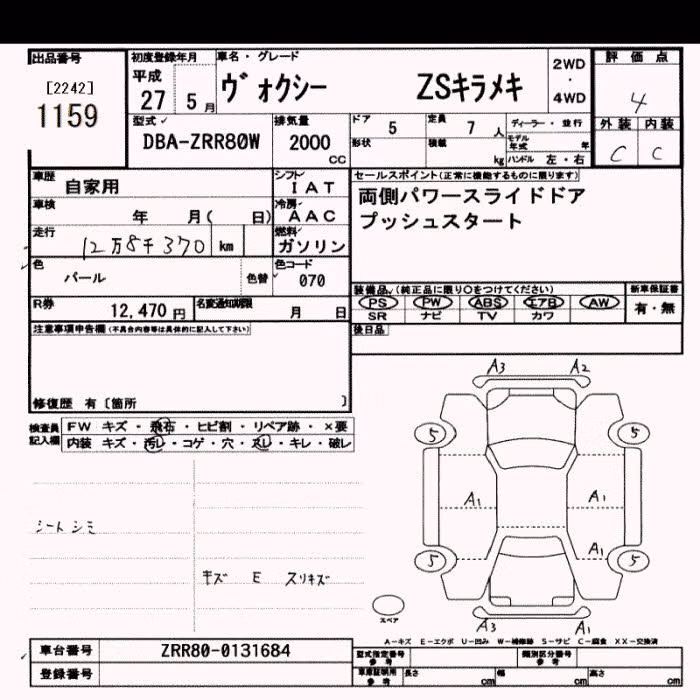 出品番号 初度登録年月 車名・グレード 2WD・4WD 評価点
[2242] 平成
1159 27 5月 ヴォクシー ZSキラメキ 4
型式 排気量 ドア 5 定員 7 人 ディーラー・並行 外装 内装
DBA-ZRR80W 2000 cc 形状 積載 kg モデル年式 年 C C
ハンドル 左・右
車歴 自家用 シフト IAT セールスポイント(正常に機能するものに限ります)
車検 年 月( 日) 冷房 AAC 両側パワースライドドア
プッシュスタート
走行 12万8千370 km 燃料 ガソリン
色 パール 色替 色コード 070
装備品(純正品に限り○をつけてください) 新車保証書
PS PW ABS エアB AW 有・無
SR ナビ TV カワ
R券 12,470円 名変通知期限 月 日
注意事項申告欄(不具合内容等は具体的に記入して下さい) 後日品
修復歴 有〔箇所 〕
検査員記入欄 FW キズ・飛石・ヒビ割・リペア跡・×要
内装 キズ・汚レ・コゲ・穴・スレ・キレ・破レ
A3 A2
5 5
A1 A1
シートシミ
A1
5 5
キズ E スリキズ
スペア
A3 A1
A-キズ E-エクボ U-凹み W-補修跡 S-サビ C-腐食 XX-交換済
車台番号 ZRR80-0131684 型式指定番号 参考 類別区分番号 参考
登録番号 車庫証明用 参考 長さ cm 幅 cm 高さ cm